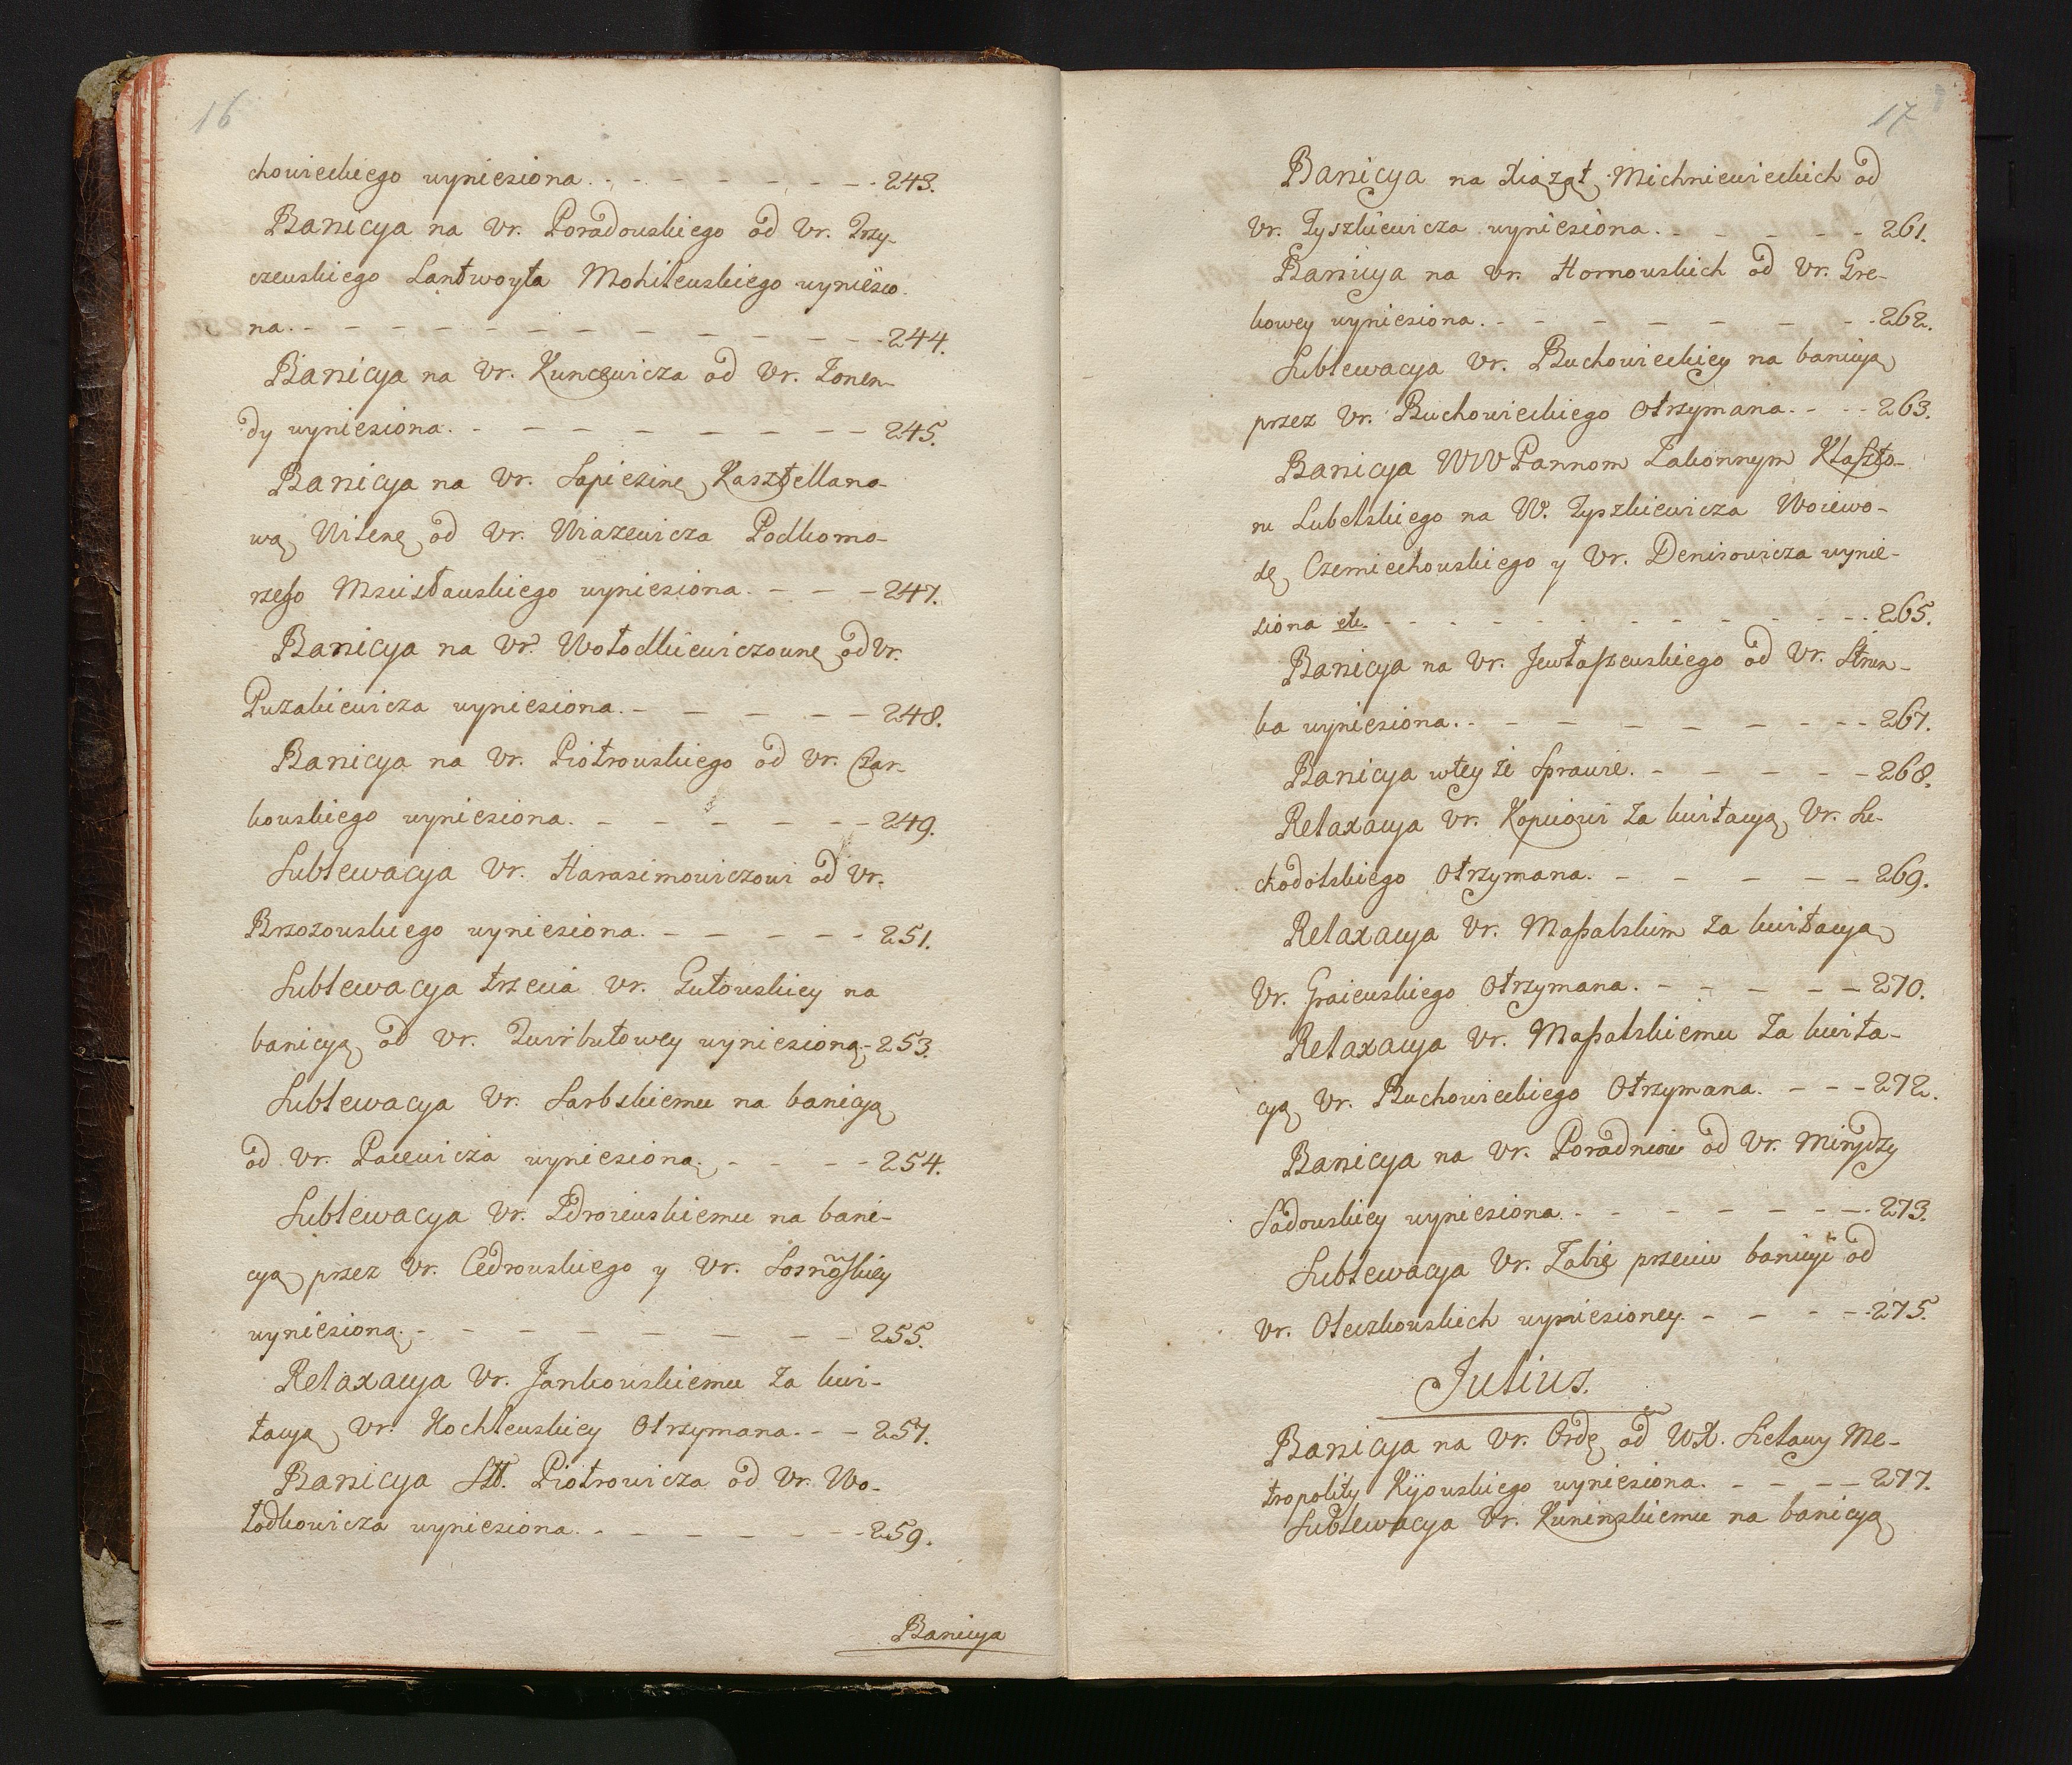 16
chowieckiego wyniesiona. - - - - - - - 243.
Banicya na Vr. Poradowskiego od Vr. Trzy-
czewskiego Lantwoyta Mohilewskiego wyniesio-
na. - - - - - - - - - - - 244.
Banicya na Vr. Kuncewicza od Vr. Zonen-
dy wyniesiona. - - - - - - - - 245.
Banicya na Vr. Sapiezinę Kasztellano-
wą Wilenę od Vr. Wiazewicza Podkomo-
rzego Mscisławskiego wyniesiona. - - - 247.
Banicya na Vr. Wołodkiewiczownę od Vr.
Puzakiewicza wyniesiona. - - - - - 248.
Banicya na Vr. Piotrowskiego od Vr. Czar-
kowskiego wyniesiona. - - - - - - 249.
Sublewacya Vr. Harasimowiczowi od Vr.
Brzozowskiego wyniesiona. - - - - - 251.
Sublewacya trzecia Vr. Gutowskiey na
banicyą od Vr. Zwirbutowey wyniesioną. - 253.
Sublewacya Vr. Sarbskiemu na banicyą
od Vr. Pacewicza wyniesioną. - - - - 254.
Sublewacya Vr. Zdroiewskiemu na bani-
cyą przez Vr. Cedrowskiego y Vr. Sosnoskiey
wyniesioną. - - - - - - - - 255.
Relaxacya Vr. Jankowskiemu za kwi-
tacyą Vr. Kochlewskiey Otrzymana. - - 257.
Banicya Stł. Piotrowicza od Vr. Wo-
łodkowicza wyniesiona. - - - - - - 259.
Banicya
17
Banicya na Xiążąt Michniewieckich od
Vr. Tyszkiewicza wyniesiona. - - - - - 261.
Banicya na Vr. Hornowskich od Vr. Gre-
kowey wyniesiona. - - - - - - - 262.
Sublewacya Vr. Buchowieckiey na banicyą
przez Vr. Buchowieckiego Otrzymana. - - - 263.
Banicya WW Pannom Zakonnym Klaszto-
ru Lubelskiego na W. Tyszkiewicza Woiewo-
dę Czerniechowskiego y Vr. Denisowicza wynie-
siona etc. - - - - - - - - - - - 265.
Banicya na Vr. Jewłaszewskiego od Vr. Strun-
ka wyniesiona. - - - - - - - - 267.
Banicya wtey że Sprawie. - - - - - 268.
Relaxacya Vr. Kopciowi za kwitacyą Vr. Su-
chodolskiego Otrzymana. - - - - - 269.
Relaxacya Vr. Massalskim za kwitacyą
Vr. Graiewskiego Otrzymana. - - - - - 270.
Relaxacya Vr. Massalskiemu za kwita-
cyą Vr. Buchowieckiego Otrzymana. - - - 272.
Banicya na Vr. od Vr.
Sadowskiey wyniesiona. - - - - - - 273.
Sublewacya Vr. Zabie przeciw banicyi od
Vr. Oleszkowskich wyniesioney. - - - - 275.
Julius.
Banicya na Vr. Ordę od WX. Szelawy Me-
tropolity Kijowskiego wyniesiona. - - - - 277.
Sublewacya Vr. Kuninskiemu na banicyą